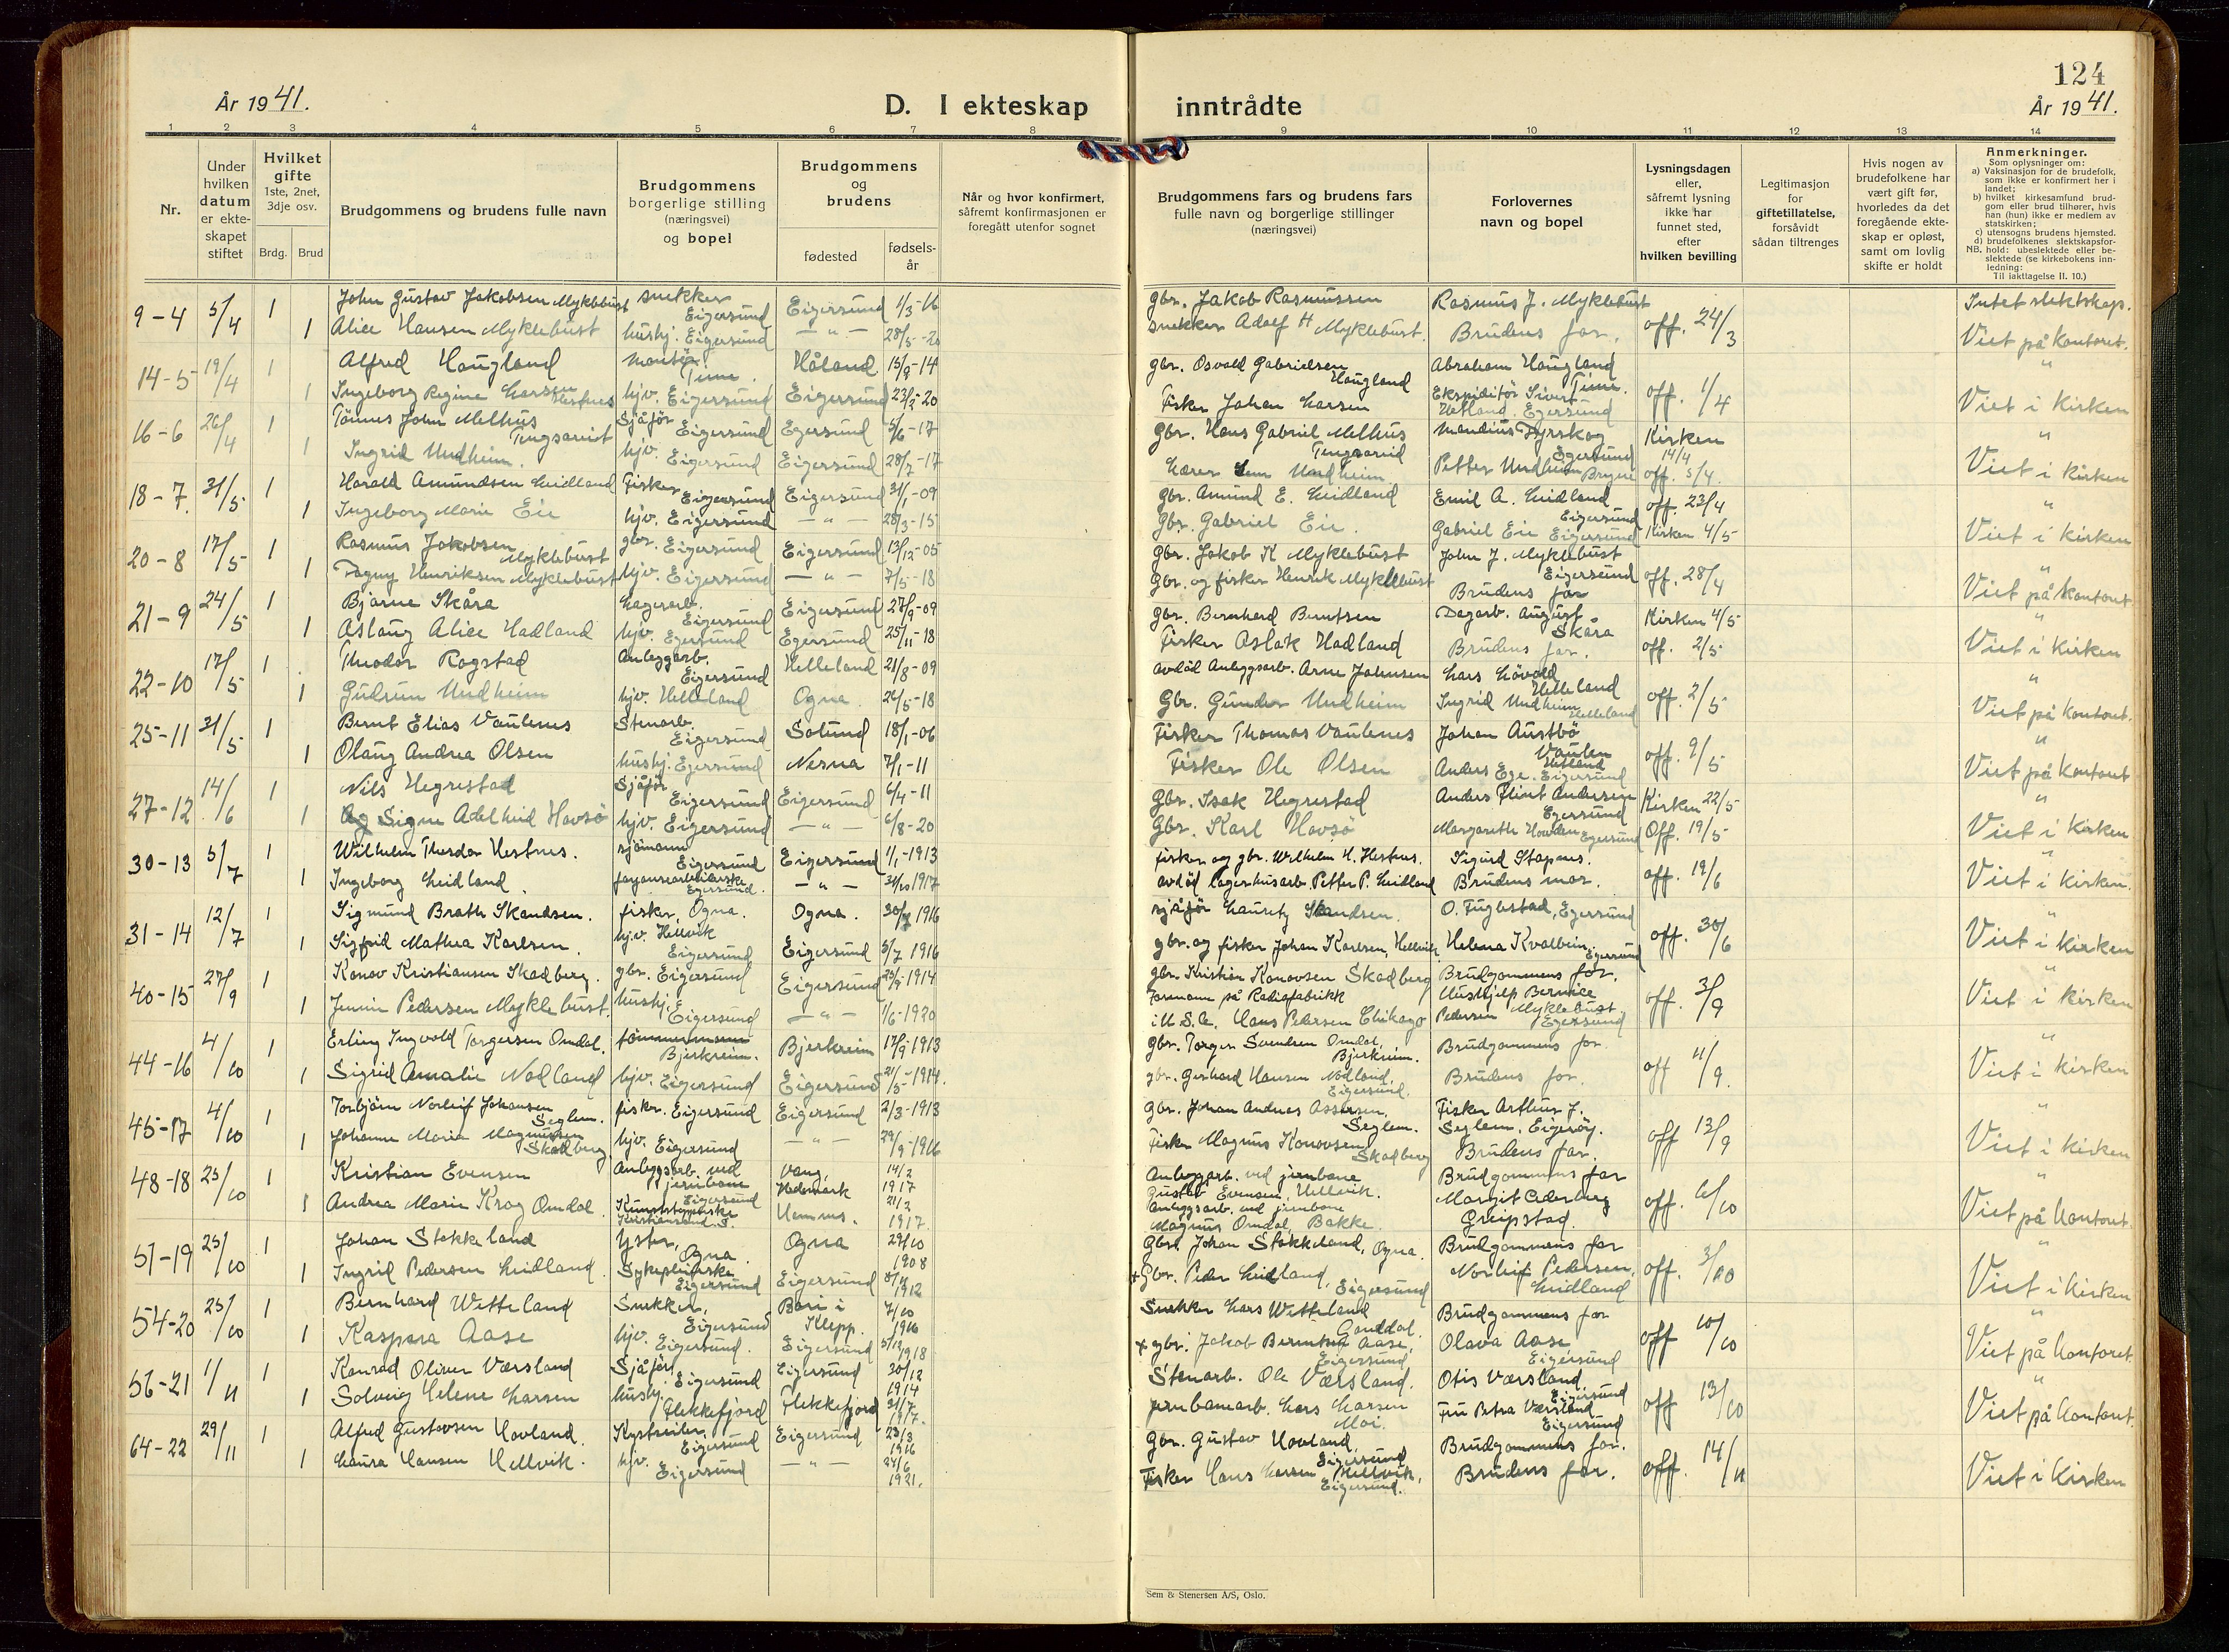 124
År 1941.
D. I ekteskap inntrådte
År 1941.
1 2 3 4 5 6 7 8 9 10 11 12 13 14
Nr.
Under hvilken datum er ekteskapet stiftet
Hvilket gifte 1ste, 2net, 3dje osv.
Brdg. Brud
Brudgommens og brudens fulle navn
Brudgommens borgerlige stilling (næringsvei) og bopel
Brudgommens og brudens
fødested
fødselsår
Når og hvor konfirmert, såfremt konfirmasjonen er foregått utenfor sognet
Brudgommens fars og brudens fars fulle navn og borgerlige stillinger (næringsvei)
Forlovernes navn og bopel
Lysningsdagen eller, såfremt lysning ikke har funnet sted, efter hvilken bevilling
Legitimasjon for giftetillatelse, forsåvidt sådan tiltrenges
Hvis nogen av brudefolkene har vært gift før, hvorledes da det foregående ekteskap er opløst, samt om lovlig skifte er holdt
Anmerkninger.
Som oplysninger om:
a) Vaksinasjon for de brudefolk, som ikke er konfirmert her i landet;
b) hvilket kirkesamfund brudgom eller brud tilhører, hvis han (hun) ikke er medlem av statskirken;
c) utensogns brudens hjemsted.
d) brudefolkenes slektskapsforhold: ubeslektede eller beslektede (se kirkebokens innledning:
NB.
Til iakttagelse II. 10.)
9-4 5/4 1 John Gustav Jakobsen Myklebust snekker Eigersund Eigersund 1/3-16 gbr. Jakob Rasmussen Rasmus J. Myklebust off. 24/3 Intet slektskap.
1 Alice Hansen Myklebust hushj. Eigersund — " — 28/5-20 snekker Adolf H Myklebust. Brudens far. Viet på kontoret.
14-5 19/4 1 Alfred Haugland Montör Time. Håland 15/9-14 gbr. Osvald Gabrielsen Haugland Abraham Haugland Time. off. 1/4 "
1 Ingeborg Regine Larsen Hestnes hjv. Eigersund Eigersund 23/2-20 Fisker Johan Larsen Ekspiditör Sivert Hetland. Egersund Viet i Kirken
16-6 26/4 1 Tönnes John Melhus Tengsareid Sjåför Eigersund Egersund 5/6-17 Gbr. Hans Gabriel Melhus Tengsareid Mandius Fyrskog Egersund Kirken 14/4 "
1 Ingrid Undheim. hjv. Eigersund Eigersund 28/7-17 Lærer Undheim Petter Undheim Bryne off. 5/4. Viet i kirken
18-7. 31/5 1 Harald Amundsen Leidland Fisker Eigersund Eigersund 31/1-09 Gbr. Amund E. Leidland Emil A. Leidland Eigersund off. 23/4 "
1 Ingeborg Marie Eie hjv. Eigersund — " — 28/3-15 Gbr. Gabriel Eie. Gabriel Eie Eigersund Kirken 4/5 Viet i kirken
20-8 17/5 1 Rasmus Jakobsen Myklebust gbr. Eigersund Eigersund 13/12-05 Gbr. Jakob K Myklebust John J. Myklebust Eigersund off. 28/4 "
1 Dagny Henriksen Myklebust hjv. Eigersund — " — 7/5-18 Gbr. og fisker Henrik Myklebust Brudens far Viet på kontoret
21-9 24/5 1 Bjarne Skåra Lagerarb. Eigersund Eigersund 27/9-09 Gbr. Bernhard Berntsen Dagarb. August Skåra Kirken 4/5 "
1 Aslaug Alice Hadland hjv. Egersund Egersund 25/11-18 Fisker Aslak Hadland Brudens far. off. 2/5 Viet i Kirken
22-10 17/5 1 Theodor Rogstad Anleggarb. Eigersund Helleland 21/8-09 avdöd Anleggsarb. Arne Johnsen Lars Lövold Helleland off. 2/5 "
1 Gudrun Undheim hjv. Helleland Ogna. 26/5-18 Gbr. Gunder Undheim Ingrid Undheim Helleland Viet på kontoret.
25-11 31/5 1 Bernt Elias Vaulenes Stenarb. Eigersund Solund 18/1-06 Fisker Thomas Vaulenes Johan Austbö Vaulen Hetland off. 9/5 "
1 Olaug Andrea Olsen hushj. Eigersund Nesna 7/1-11 Fisker Ole Olsen Anders Ege. Eigersund Viet på kontoret
27-12 14/6 1 Nils Hegrestad Sjåför Eigersund Eigersund 6/4-11 Gbr. Isak Hegrestad Anders Flint Andersen Egersund Kirken 22/5 "
1 Signe Adelheid Havsö hjv. Eigersund — " — 6/8-20 Gbr. Karl Havsö Margareth Howden Egersund Off. 19/5 Viet i kirken
30-13 5/7 1 Wilhelm Theodor Hestnes. sjömann Eigersund Eigersund 1/1-1913 fisker og gbr. Wilhelm H. Hestnes. Sigurd Stapnes. off. 19/6 "
1 Ingeborg Leidland. Egersund. — " — 31/10 1917 avdöd lagerhusarb. Petter P. Leidland Brudens mor. Viet i kirken.
31-14 12/7 1 Sigmund Brath Skandsen. fisker, Ogna. Ogna. 1916 sjåför Lauritz Skandsen. O. Fuglestad, Egersund off. 30/6 "
1 Sigfrid Mathea Karlsen. hj.v. Hellvik Eigersund Eigersund 5/7 1916 gbr. og fisker Johan Karlsen, Hellvik Helena Kvalbein, Egersund Viet i kirken
40-15 27/9 1 Konov Kristiansen Skadberg. gbr. Eigersund Eigersund 1914 gbr. Kristian Konovsen Skadberg Brudgommens far. off. 3/9 "
1 Jennie Pedersen Myklebust. hushj. Eigersund — " — 1/6-1920 Formann på Radiofabrikk i U.S.A. Hans Pedersen Chikago Hushjelp Bernice Pedersen Myklebust Egersund Viet i kirken
44-16 4/10 1 Erling Ingvald Torgersen Omdal. tömmermann Bjerkreim. Bjerkreim 17/9-1913 gbr. Torger Svendsen Omdal, Bjerkreim. Brudgommens far. off 11/9. "
1 Sigrid Amalie Nodland hjv. Eigersund Eigersund 21/5-1914. gbr. Gerhard Hansen Nodland, Eigersund. Brudens far. Viet i kirken
45-17 4/10 1 Torbjörn Norleif Johansen Seglem. fisker. Eigersund Eigersund 2/3-1913 Gbr. Johan Andreas Assersen, Seglem. Fisker Arthur J. Seglem. Eigeröy. off 13/9 "
1 Johanne Marie Magnussen Skadberg hjv. Eigersund — " — 29/9-1916 Fisker Magnus Konovsen Skadberg Brudens far. Viet i kirken
48-18 25/10 1 Kristian Evensen Anleggsarb. ved jernbane Eigersund Vang, Hedemark 14/2 1917 Anleggarb. ved jernbane Gustav Evensen, Hellvik. Brudgommens far off. 6/10 "
1 Andrea Marie Krag Omdal. Kristiansand. S. 21/2 1917. Anleggsarb. ved jernbane Magnus Omdal, Bakke. Margit Cederberg Greipstad. Viet på kontoret.
51-19 25/10 1 Johan Stokkeland Yster, Ogna Ogna 29/10 1908 Gbr. Johan Stokkeland, Ogna. Brudgommens far off. 3/10 "
1 Ingrid Pedersen Leidland. Sykepleierske Eigersund Eigersund 1912 + Gbr. Peder Leidland, Eigersund Norleif Pedersen, Leidland Viet i Kirken
54-20 25/10 1 Bernhard Witteland Snekker, Eigersund Bori i Klepp. 7/10 1916 Snekker Lars Witteland Ganddal. Brudgommens far off 10/10 "
1 Kaspara Aase hjv. Eigersund. Eigersund 5/12 1918 + gbr. Jakob Berntsen Aase, Eigersund Olava Aase Eigersund Viet på kontoret.
56-21 1/11 1 Konrad Oliver Værsland Sjåför, Eigersund Eigersund 30/12 1914 Stenarb. Ole Værsland. Otis Værsland. Eigersund off 13/10 "
1 Solveig Helene Larsen hushj. Flekkefjord Flekkefjord 21/7 1917. jernbanearb. Lars Larsen Moi. Fru Petra Værsland Eigersund Viet på kontoret.
64-22 29/11 1 Alfred Gustavsen Hovland. Kystseiler, Eigersund Eigersund 23/3 1916 Gbr. Gustav Hovland, Eigersund Brudgommens far. off. 14/11
1 Laura Hansen Hellvik. hjv. Eigersund — " — 24/6 1921. Fisker Hans Larsen Hellvik, Eigersund. Brudens far. Viet i Kirken
Sem & Stenersen A/S, Oslo.